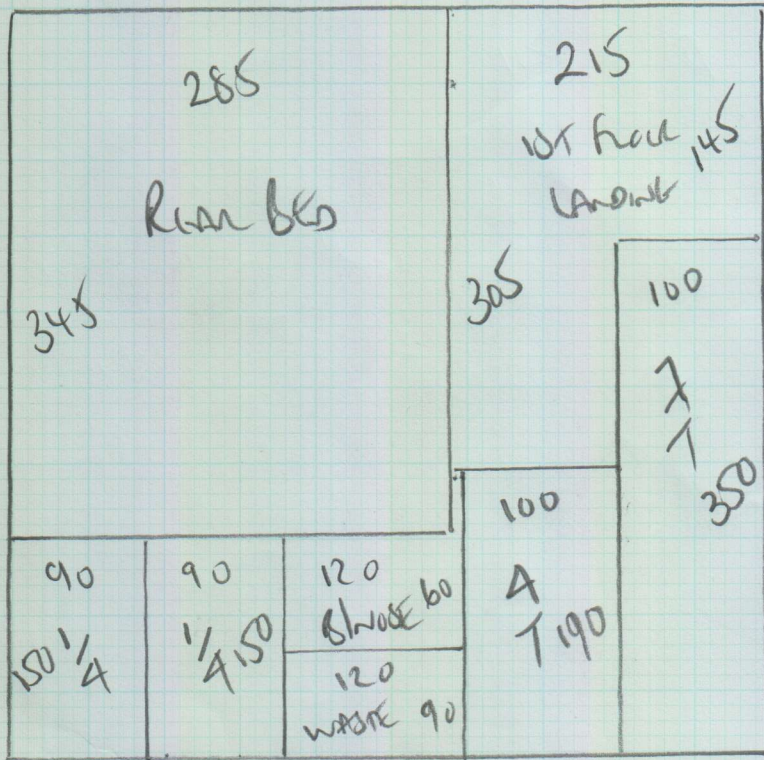 285
REAR BED
345
215
1ST FLOOR
145
LANDING
305
100
7
T
350
100
4
T 190
90
150 1/4
90
1/4 150
120
B/NOSE 60
120
WASTE 90